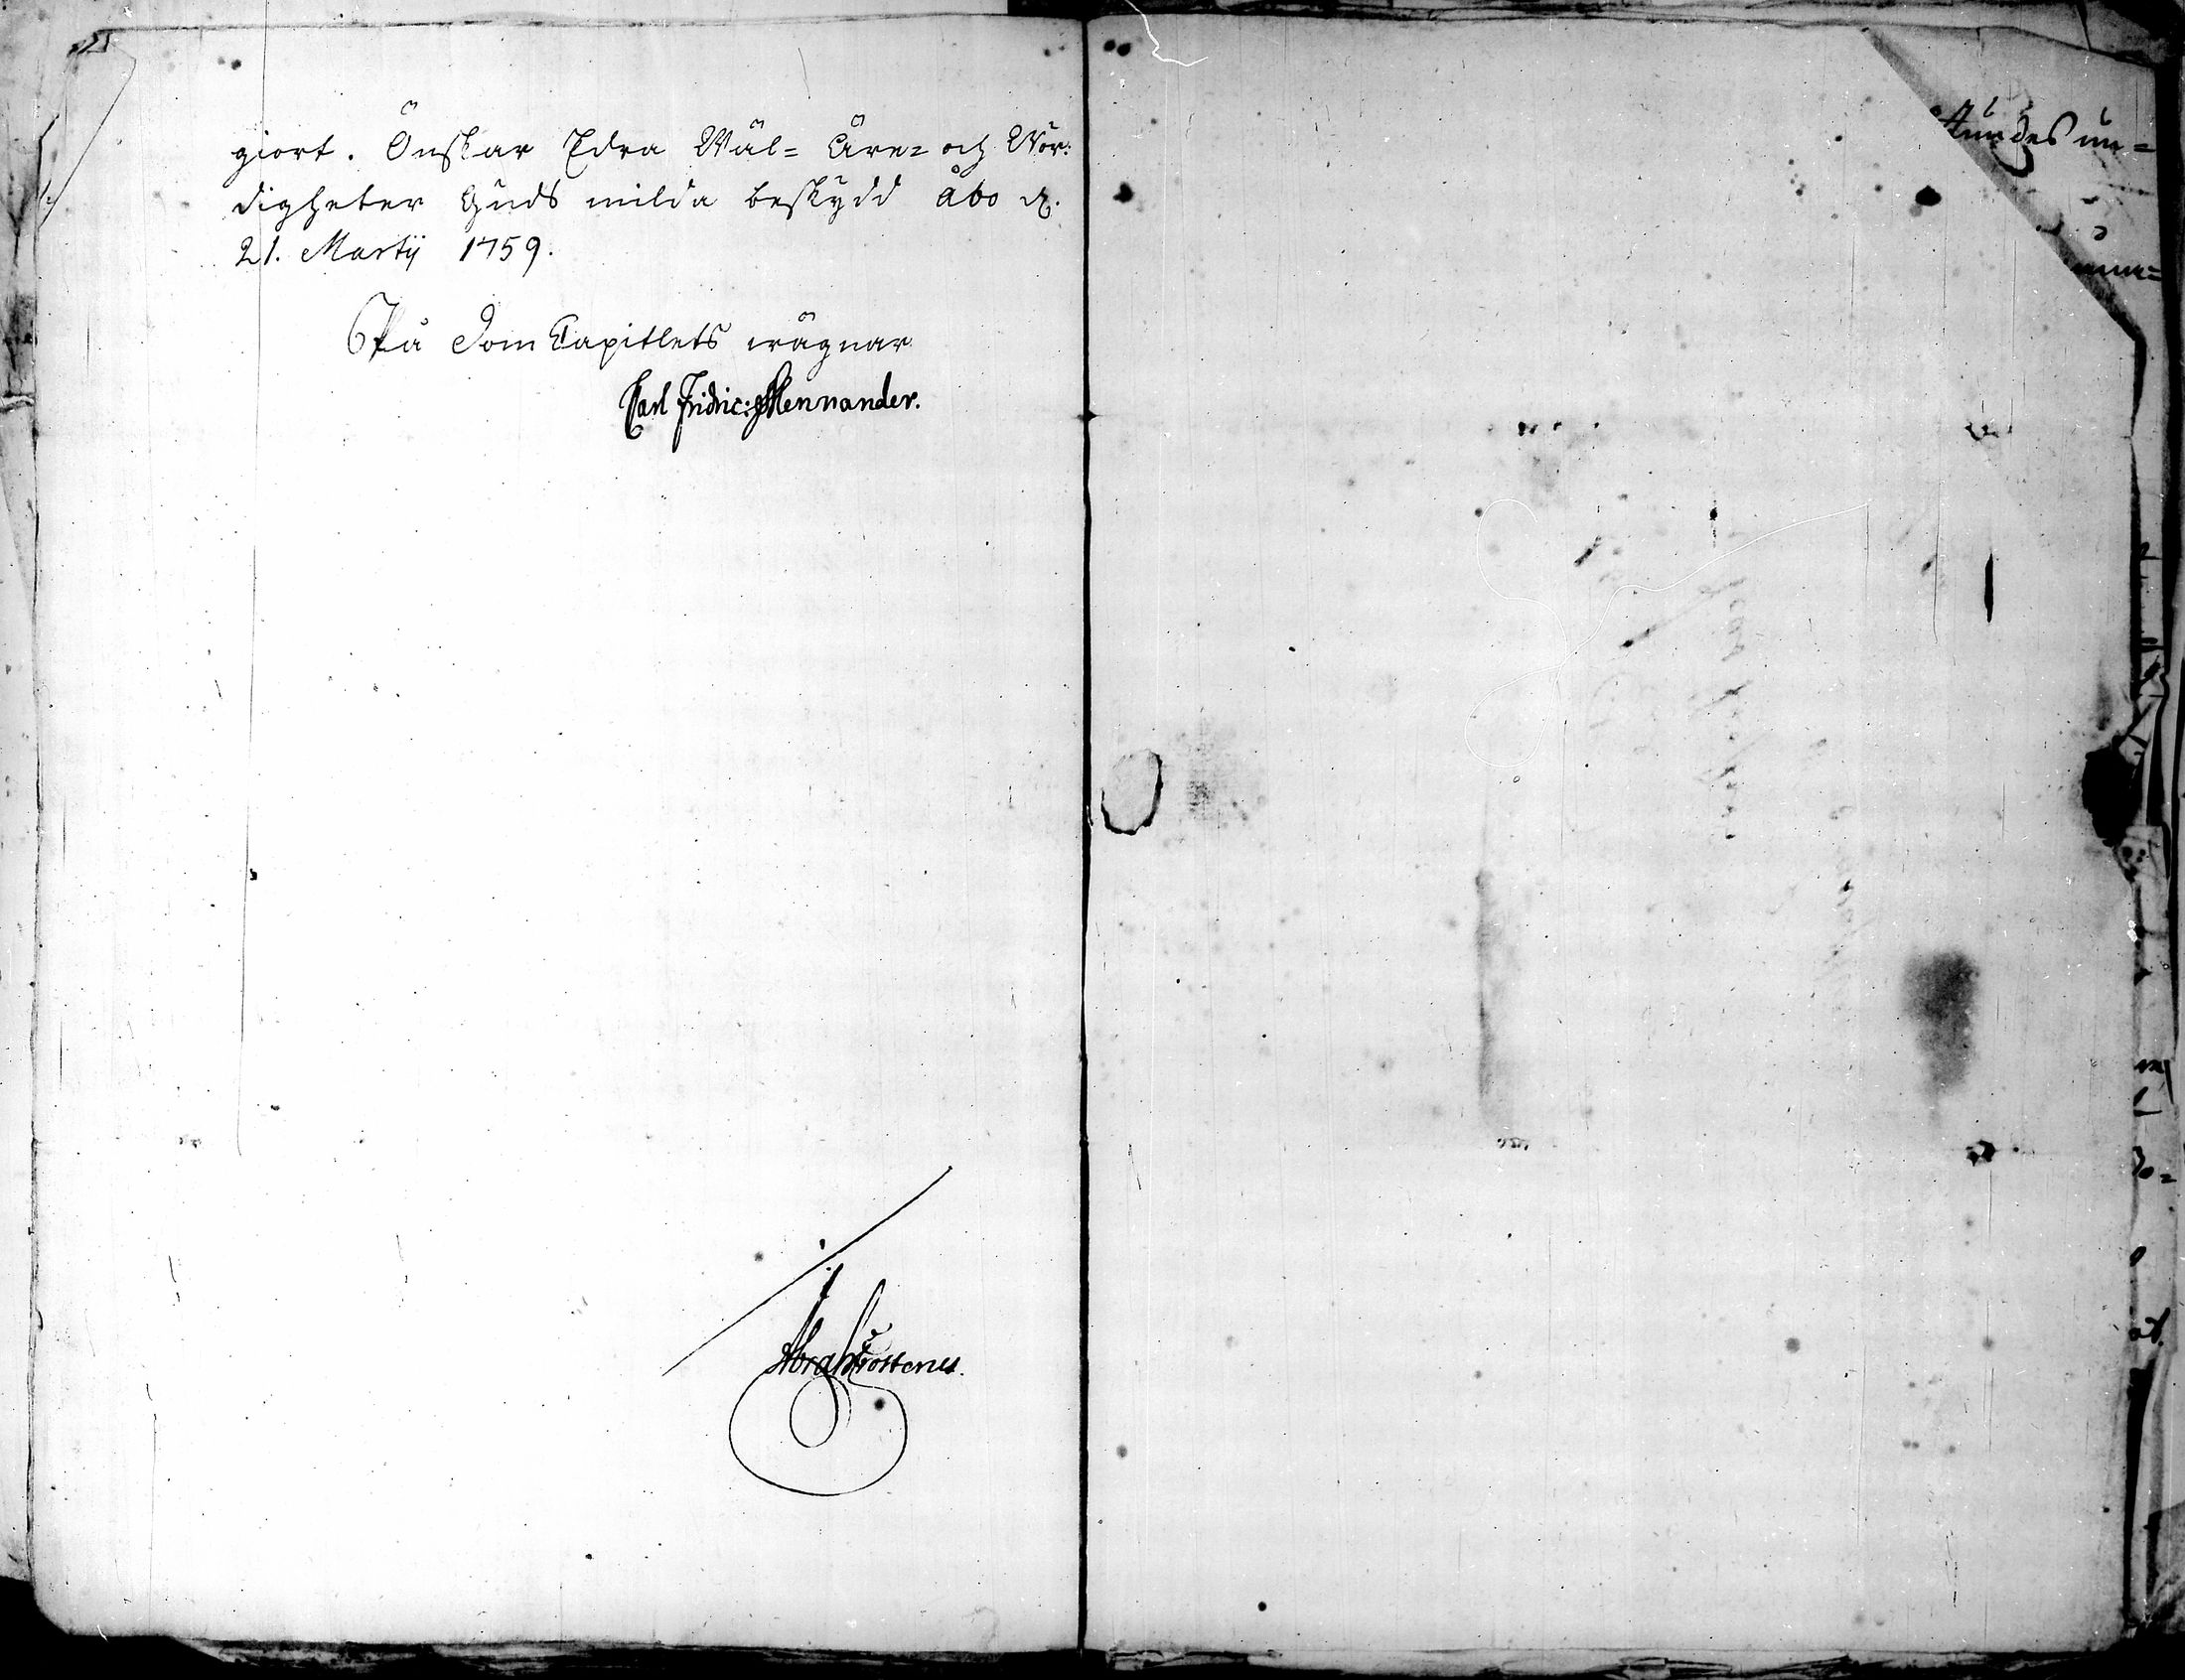 giort. Önskar Edra Wäl= Äre= och Wör:
digheter Guds milda beskydd Åbo d.
21. Martÿ 1759.
På Dom Capitlets wägnar
Carl Fridric: Mennander.
Abrah